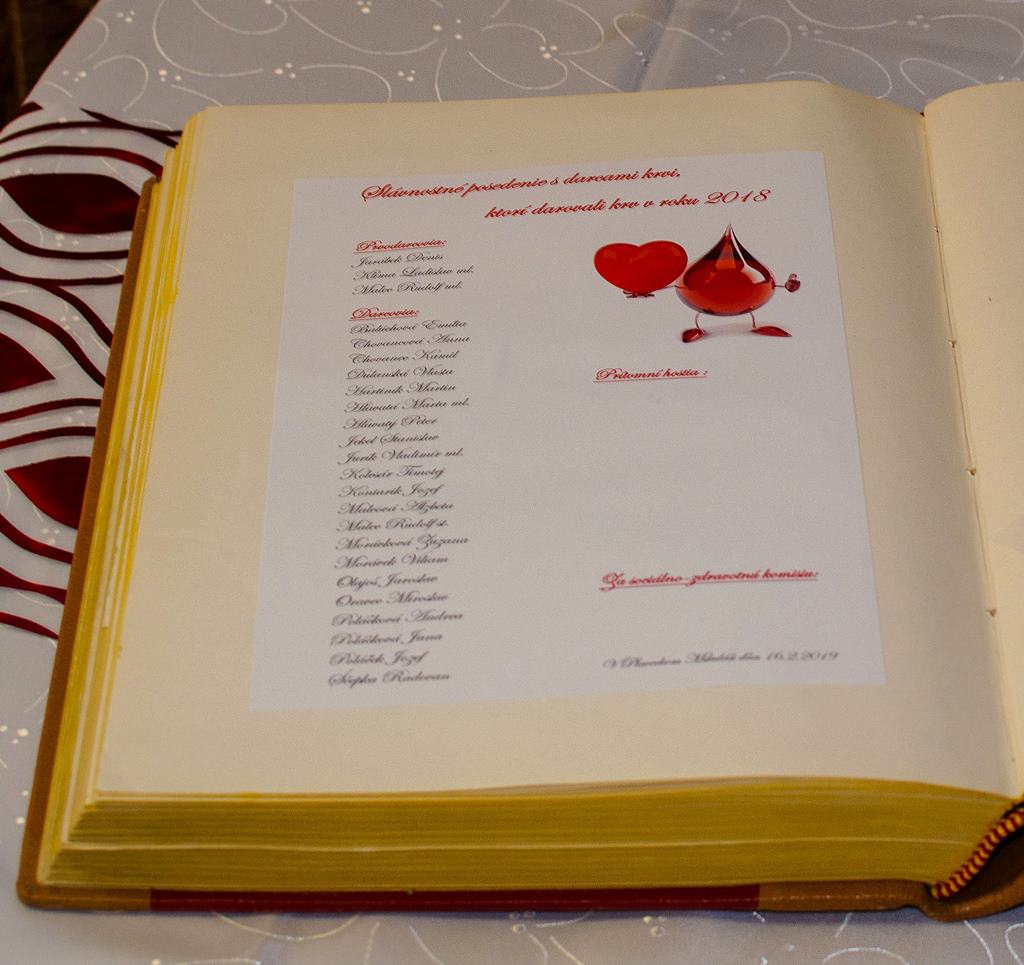 Slávnostné posedenie s darcami krvi,
ktorí darovali krv v roku 2018
Prvodarcovia:
Jarábek Denis
Klima Ladislav ml.
Malec Rudolf ml.
Darcovia:
Emília
Chovancová Anna
Chovanec Kamil
Dulanská Vlasta
Hartiník Martin
Hlavatá Marta ml.
Hlavatý Peter
Jekel Stanislav
Jurík Vladimír ml.
Kolesár Timotej
Kontarik Jozef
Malcová Alžbeta
Malec Rudolf st.
Morávková Zuzana
Morávek Viliam
Olajoš Jaroslav
Oravec Miroslav
Poláčková Andrea
Poláčková Jana
Poláček Jozef
Ščepka Radovan
Prítomní hostia :
Za sociálno-zdravotnú komisiu:
V Plaveckom Mikuláši dňa 16.2.2019